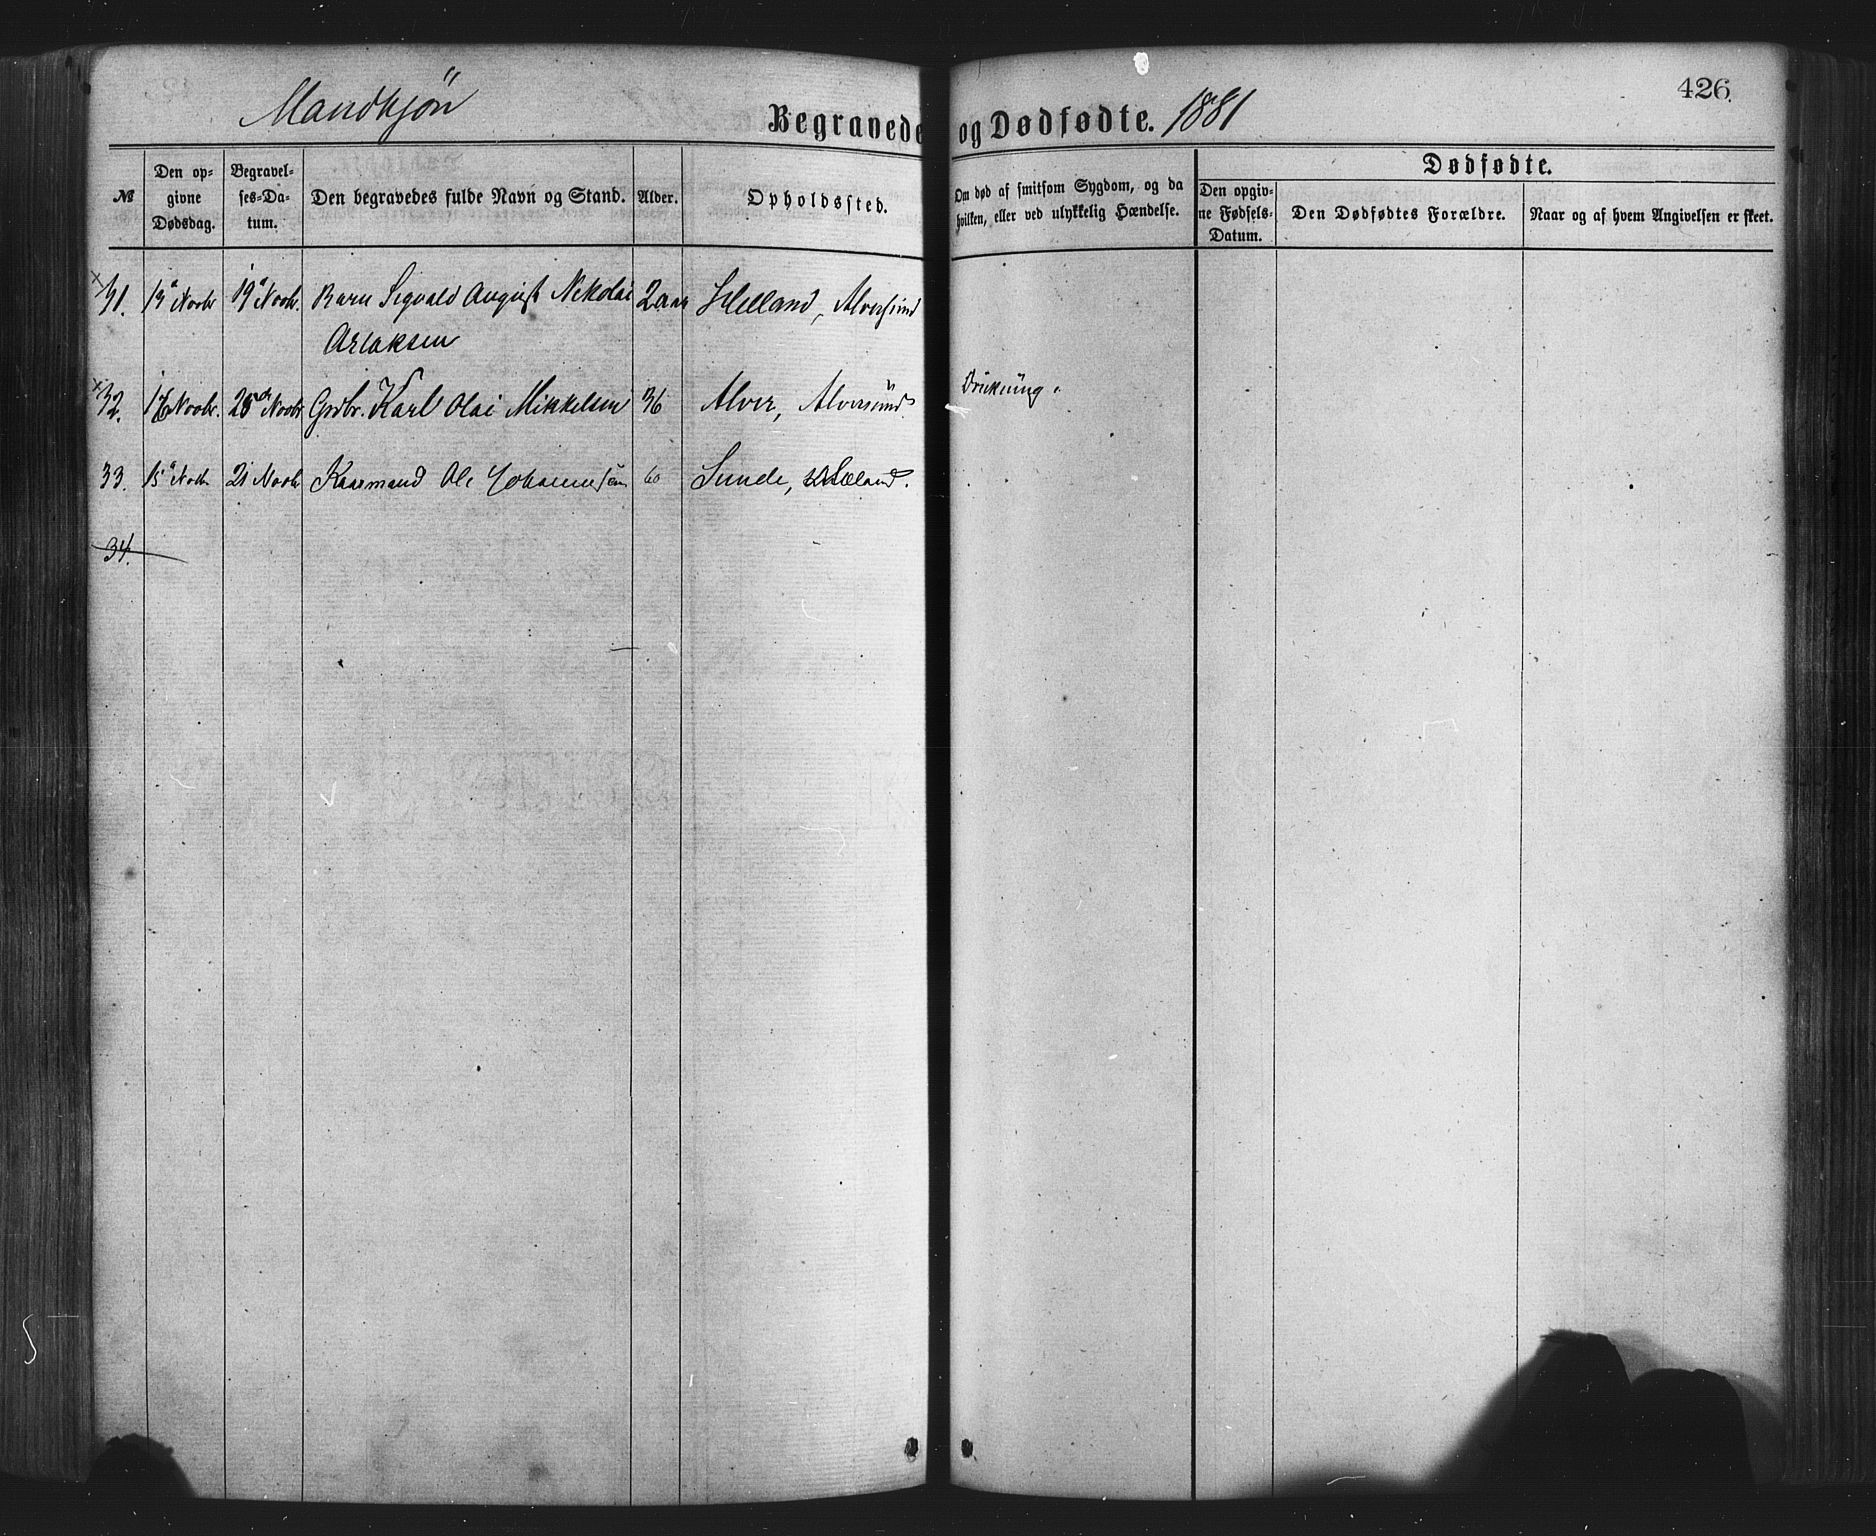 Mandkjön
Begravede og Dødfødte. 1881
426.
Dødfødte.
№
Den opgivne Dødsdag.
Begravelses-Datum.
Den begravedes fulde Navn og Stand.
Alder.
Opholdssted.
Om død af smitsom Sygdom, og da hvilken, eller ved ulykkelig Hændelse.
Den opgivne Fødsels-Datum.
Den Dødfødtes Forældre.
Naar og af hvem Angivelsen er skeet.
31. Novbr. 19 Novbr. Barn Sigvald August Nikolai 2 aar Helland, Alversund
32. 16 Novbr. Novbr. Grdbr. Karl Olai Mikkelsen 36 Alver, Alversund. Drukning.
33. 15 21 Novbr. Kaarmand Ole Johannessen 60 Sunde, Sæland.
34.